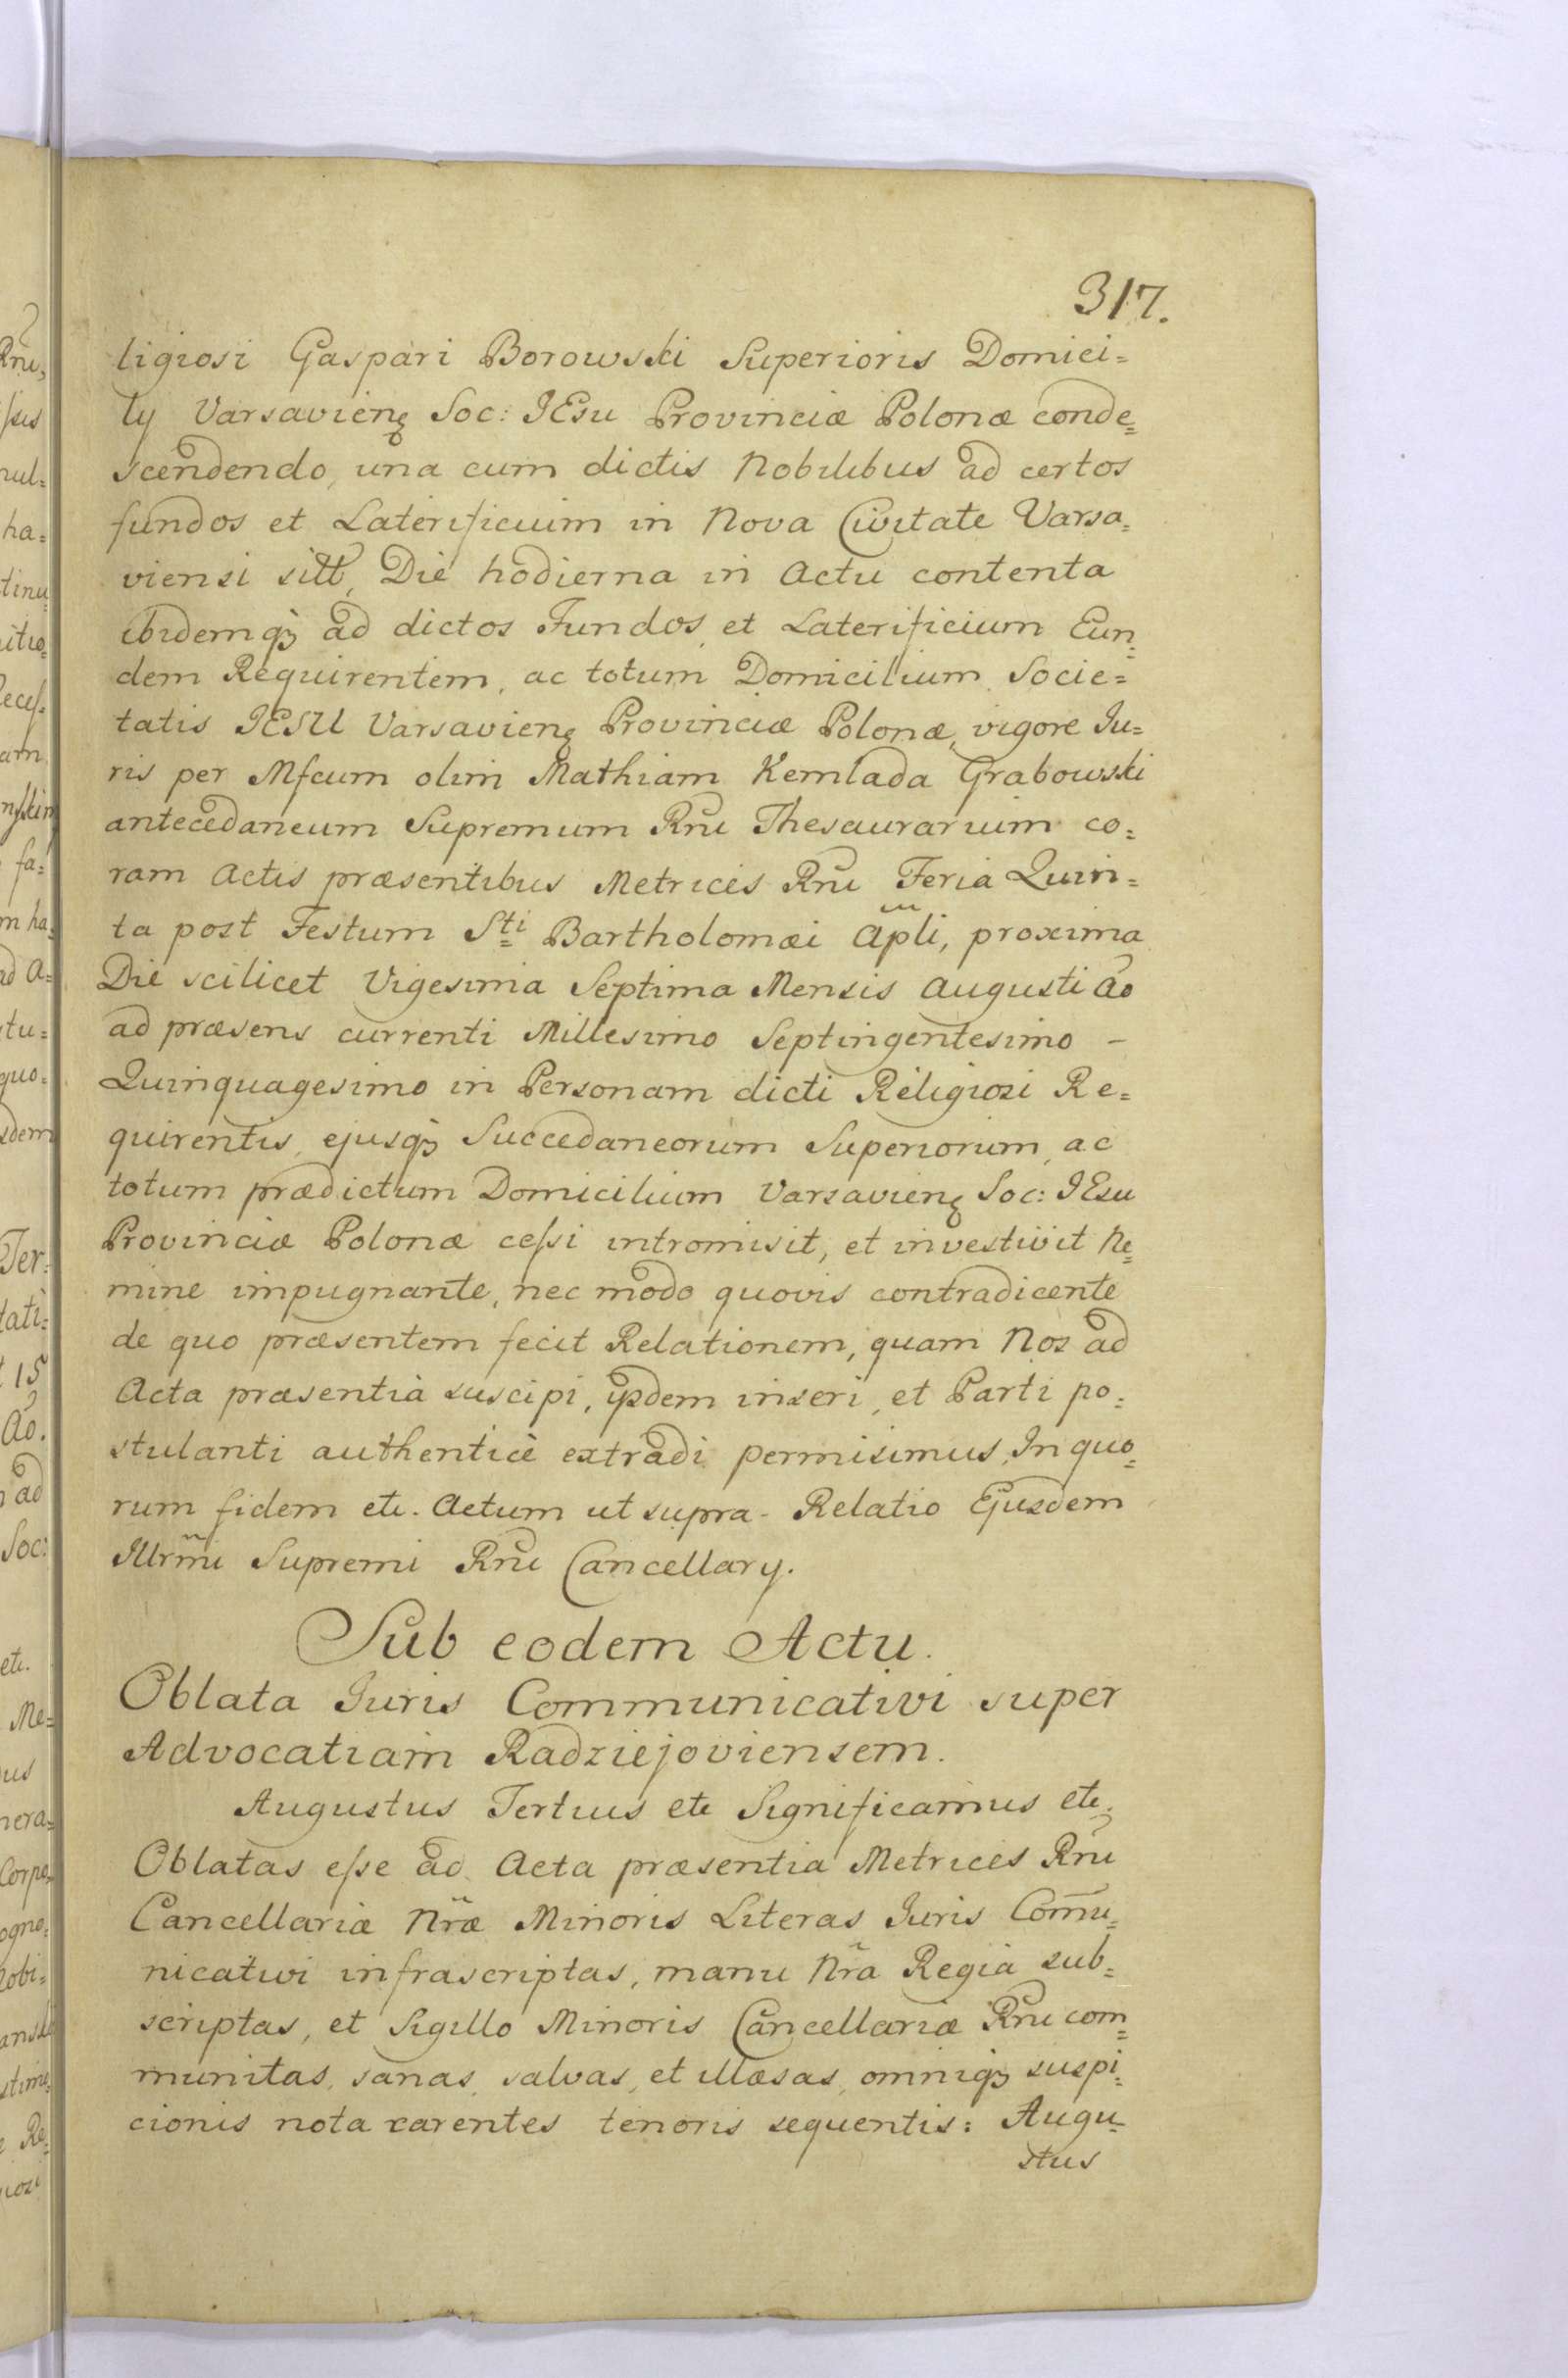 317.
ligiosi Gaspari Borowski Superioris Domici=
lÿ Varsavienȝ Soc: IEsu Provinciæ Polonæ conde=
scendendo, una cum dictis Nobilibus ad certos
fundos et Laterificium in Nova Civitate Varsa=
viensi sitt, Die hodierna in Actu contenta
ibidemqȝ ad dictos Fundos, et Laterificium Eun=
dem Requirentem, ac totum Domicilium Socie=
tatis IESU Varsavienȝ Provinciæ Polonæ, vigore Iu=
ris per Mfcum olim Mathiam Kemlada Grabowski
antecedaneum Supremum Rnĩ Thesaurarium co=
ram Actis præsentibus Metrices Rnĩ Feria Quin=
ta post Festum Sti Bartholomæi Apli, proxima
Die scilicet Vigesima Septima Mensis Augusti Ao
ad præsens currenti Millesimo Septingentesimo –
Quinquagesimo in Personam dicti Religiosi Re=
quirentis, ejusqȝ Succedaneorum Superiorum, ac
totum prædictum Domicilium Varsavienȝ Soc: IEsu
Provinciæ Polonæ cessi intromisit, et investivit Ne=
mine impugnante, nec modo quovis contradicente
de quo præsentem fecit Relationem, quam Nos ad
Acta præsentia suscipi, ijsdem inseri, et Parti po=
stulanti authenticè extradi permisimus, In quo=
rum fidem etc. Actum ut supra - Relatio Ejusdem
Illrmi Supremi Rni Cancellarÿ.
Sub eodem Actu.
Oblata Iuris Communicativi super
Advocatiam Radziejoviensem.
Augustus Tertius etc Significamus etc.
Oblatas esse ad Acta præsentia Metrices Rni
Cancellariæ Nræ Minoris Literas Iuris Com̃u=
nicativi infrascriptas, manu Nrã Regia sub=
scriptas, et Sigillo Minoris Cancellariæ Rni com=
munitas, sanas, salvas, et illæsas, omniqȝ suspi=
cionis nota carentes tenoris sequentis: Augu=
stus